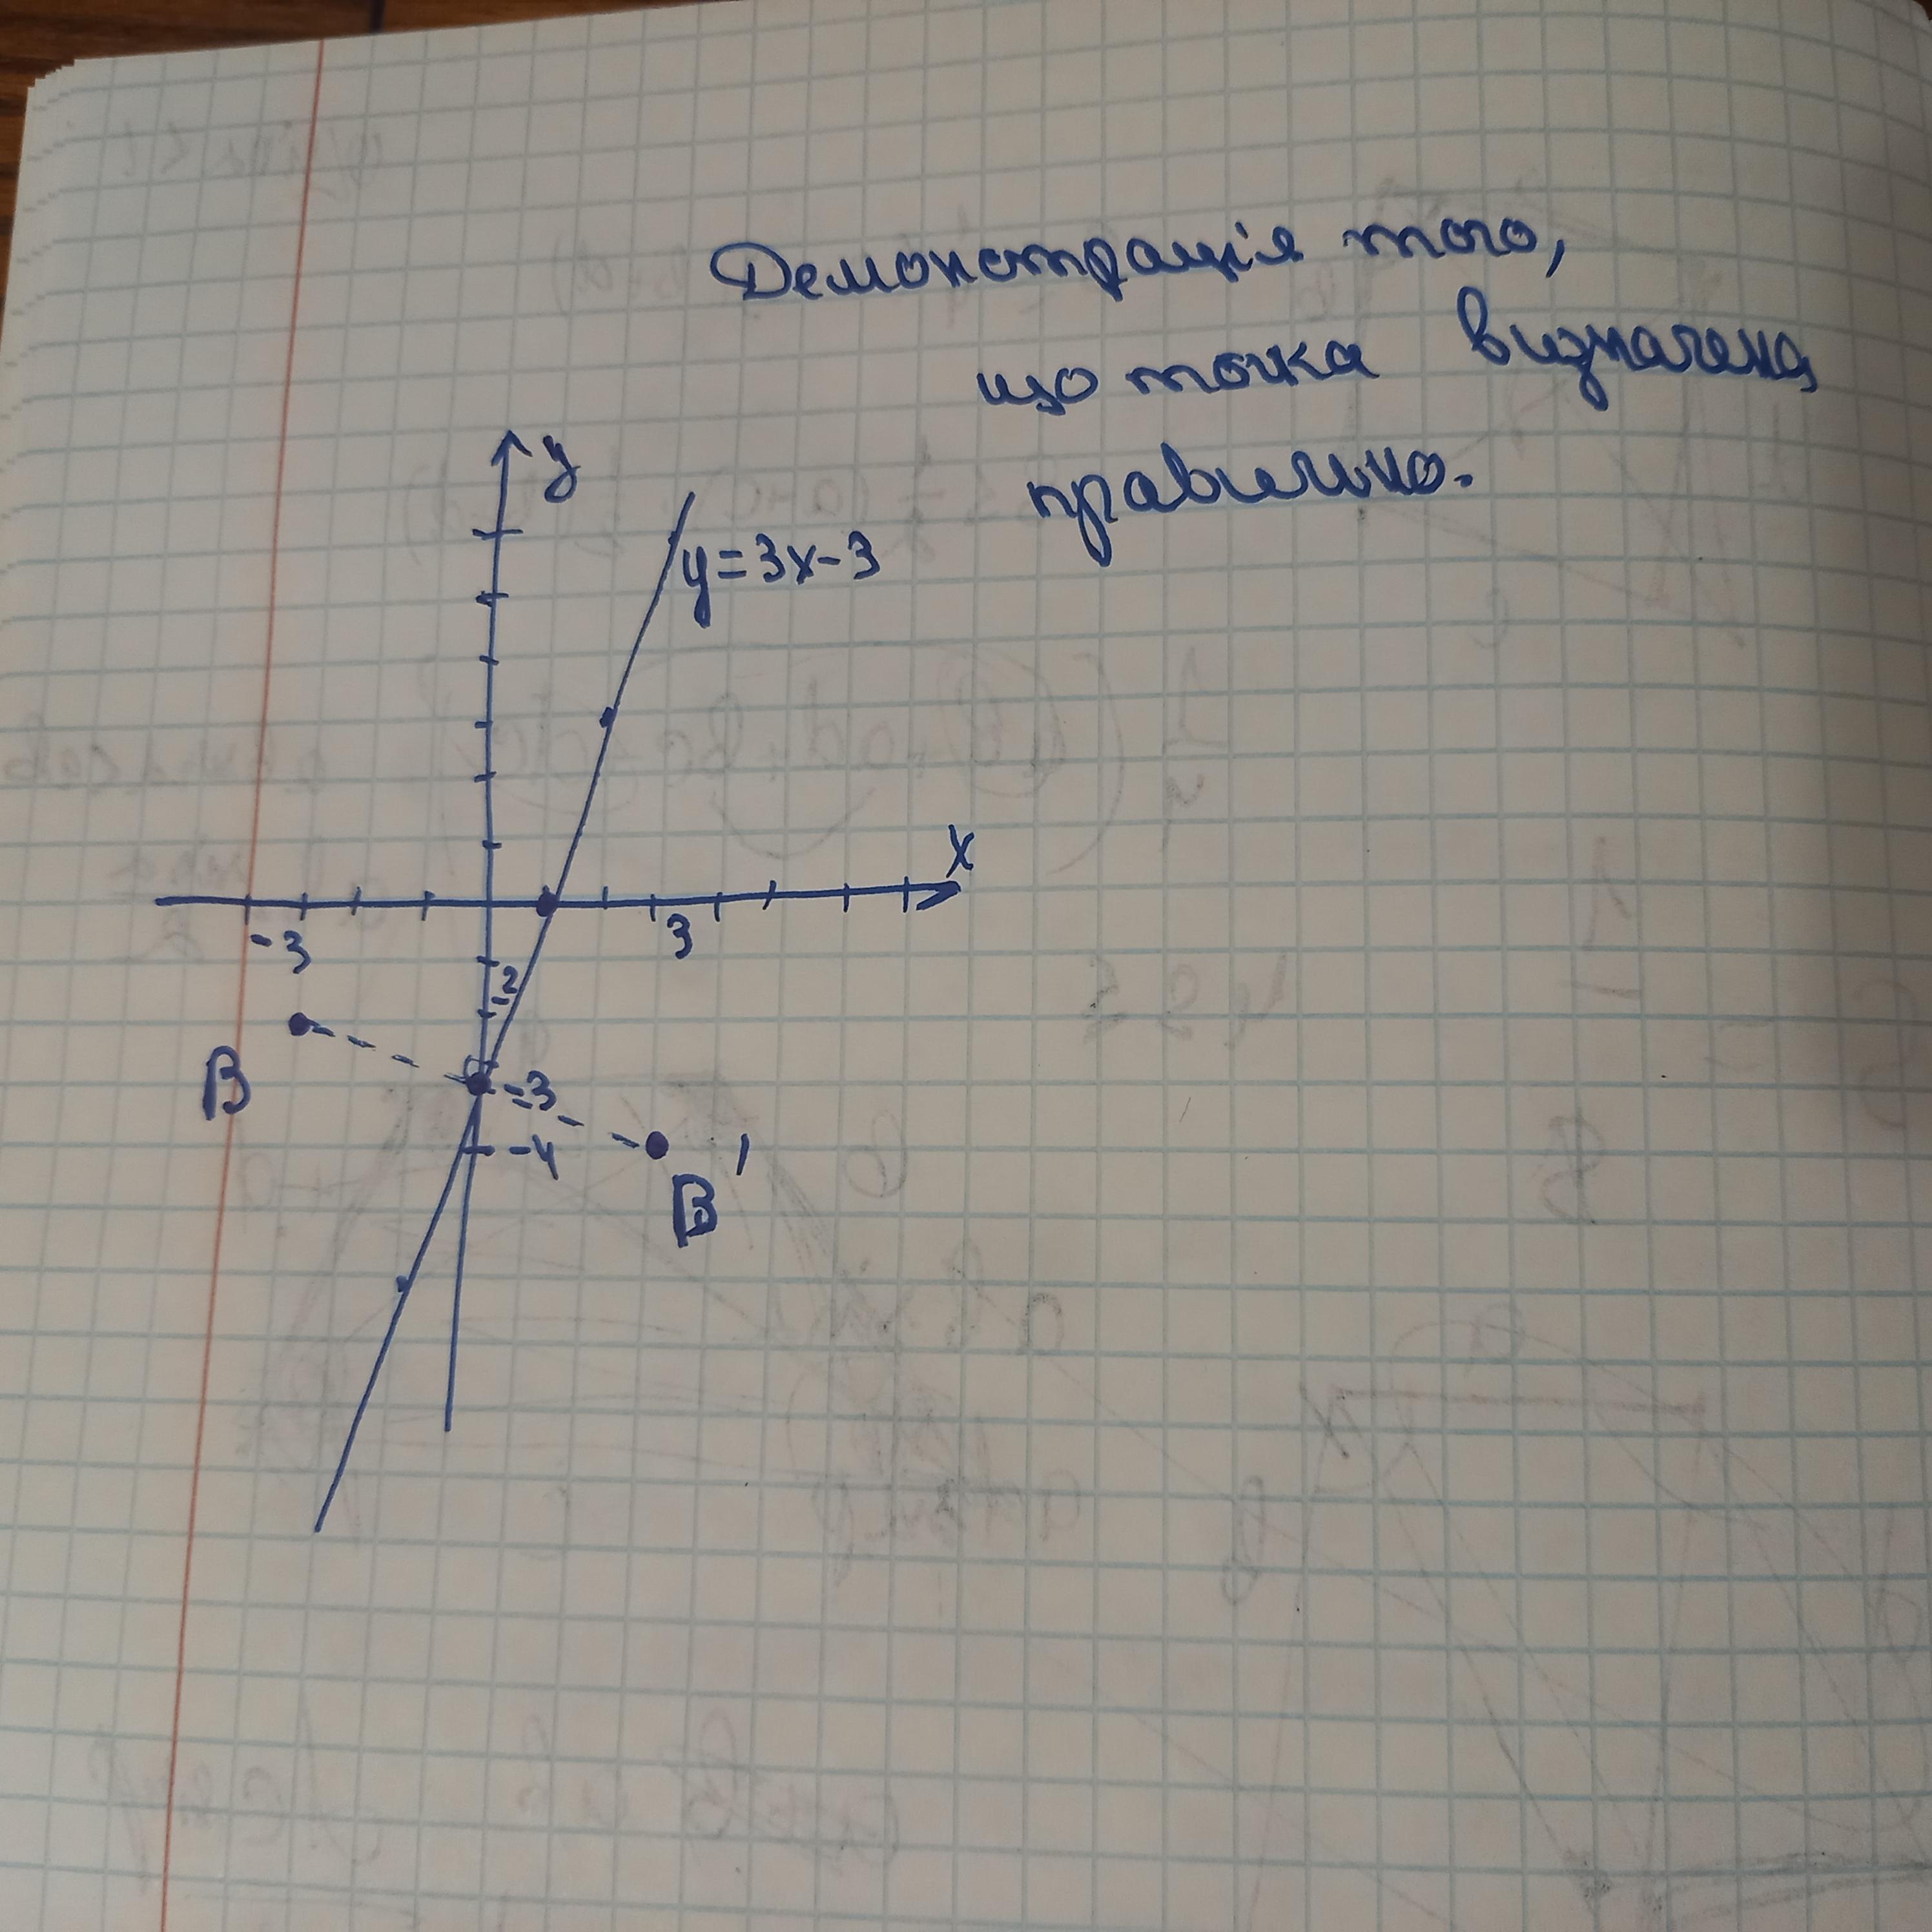 Демонстрація того,
що точка визначена
правильно.
y
y=3x-3
x
-3
3
-2
B
-3
-4
B'